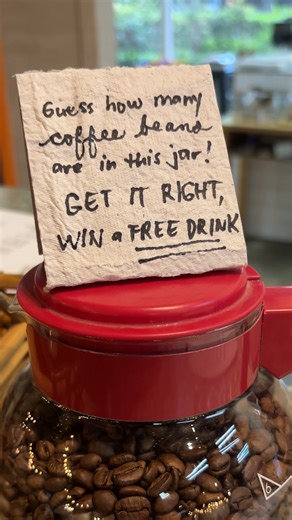 Guess how many
coffee beans
are in this jar!
GET IT RIGHT,
WIN a FREE DRINK
6